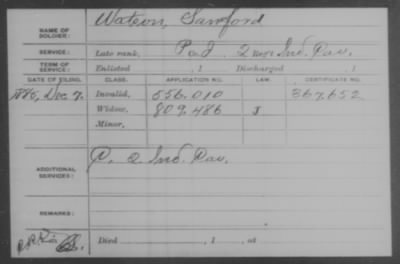 NAME OF SOLDIER: Watson, Sanford
SERVICE: Late rank, Pvt. J. 2 Regt Ind. Cav.
TERM OF SERVICE: Enlisted , 1 Discharged , 1
DATE OF FILING. CLASS. APPLICATION NO. LAW. CERTIFICATE NO.
Dec 7. Invalid, 556.010 367.652
Widow, 809.486
Minor,
ADDITIONAL SERVICES: 2 Ind. Cav.
REMARKS:
Died , 1 , at